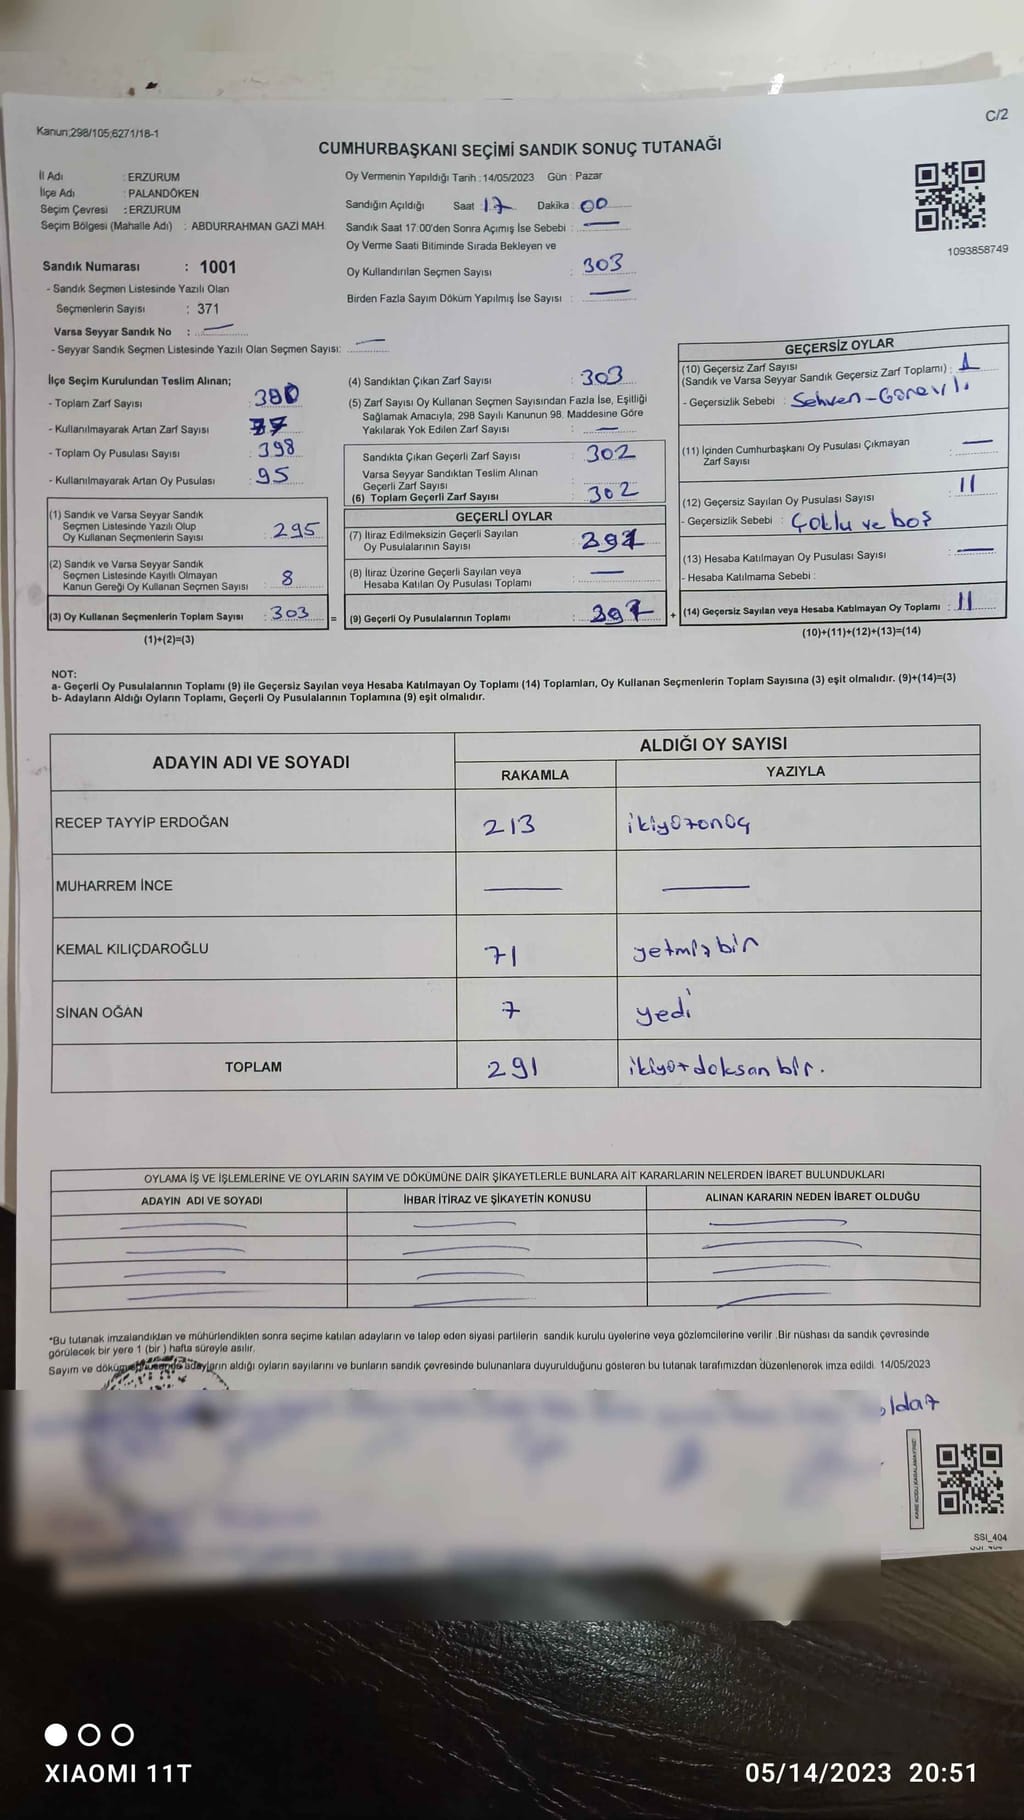 C/2
Kanun;298/105;6271/18-1
CUMHURBAŞKANI SEÇİMİ SANDIK SONUÇ TUTANAĞI
İl Adı : ERZURUM
İlçe Adı : PALANDÖKEN
Seçim Çevresi : ERZURUM
Seçim Bölgesi (Mahalle Adı) : ABDURRAHMAN GAZİ MAH.
Oy Vermenin Yapıldığı Tarih : 14/05/2023 Gün : Pazar
Sandığın Açıldığı Saat 17 Dakika : 00
Sandık Saat 17:00'den Sonra Açımış İse Sebebi :
Oy Verme Saati Bitiminde Sırada Bekleyen ve
Oy Kullandırılan Seçmen Sayısı : 303
Birden Fazla Sayım Döküm Yapılmış İse Sayısı :
1093858749
Sandık Numarası : 1001
- Sandık Seçmen Listesinde Yazılı Olan
Seçmenlerin Sayısı : 371
Varsa Seyyar Sandık No :
- Seyyar Sandık Seçmen Listesinde Yazılı Olan Seçmen Sayısı:
İlçe Seçim Kurulundan Teslim Alınan;
- Toplam Zarf Sayısı : 380
- Kullanılmayarak Artan Zarf Sayısı : 77
- Toplam Oy Pusulası Sayısı : 398
- Kullanılmayarak Artan Oy Pusulası : 95
(1) Sandık ve Varsa Seyyar Sandık
Seçmen Listesinde Yazılı Olup
Oy Kullanan Seçmenlerin Sayısı : 295
(2) Sandık ve Varsa Seyyar Sandık
Seçmen Listesinde Kayıtlı Olmayan
Kanun Gereği Oy Kullanan Seçmen Sayısı : 8
(3) Oy Kullanan Seçmenlerin Toplam Sayısı : 303 =
(1)+(2)=(3)
(4) Sandıktan Çıkan Zarf Sayısı : 303
(5) Zarf Sayısı Oy Kullanan Seçmen Sayısından Fazla İse, Eşitliği
Sağlamak Amacıyla, 298 Sayılı Kanunun 98. Maddesine Göre
Yakılarak Yok Edilen Zarf Sayısı :
Sandıkta Çıkan Geçerli Zarf Sayısı : 302
Varsa Seyyar Sandıktan Teslim Alınan
Geçerli Zarf Sayısı :
(6) Toplam Geçerli Zarf Sayısı : 302
GEÇERLİ OYLAR
(7) İtiraz Edilmeksizin Geçerli Sayılan
Oy Pusulalarının Sayısı :
(8) İtiraz Üzerine Geçerli Sayılan veya
Hesaba Katılan Oy Pusulası Toplamı :
(9) Geçerli Oy Pusulalarının Toplamı : +
GEÇERSİZ OYLAR
(10) Geçersiz Zarf Sayısı
(Sandık ve Varsa Seyyar Sandık Geçersiz Zarf Toplamı) : 1
- Geçersizlik Sebebi : Sehven-Görevli
(11) İçinden Cumhurbaşkanı Oy Pusulası Çıkmayan
Zarf Sayısı :
(12) Geçersiz Sayılan Oy Pusulası Sayısı : 11
- Geçersizlik Sebebi : Çoklu ve boş
(13) Hesaba Katılmayan Oy Pusulası Sayısı :
- Hesaba Katılmama Sebebi :
(14) Geçersiz Sayılan veya Hesaba Katılmayan Oy Toplamı : 11
(10)+(11)+(12)+(13)=(14)
NOT:
a- Geçerli Oy Pusulalarının Toplamı (9) ile Geçersiz Sayılan veya Hesaba Katılmayan Oy Toplamı (14) Toplamları, Oy Kullanan Seçmenlerin Toplam Sayısına (3) eşit olmalıdır. (9)+(14)=(3)
b- Adayların Aldığı Oyların Toplamı, Geçerli Oy Pusulalarının Toplamına (9) eşit olmalıdır.
ADAYIN ADI VE SOYADI ALDIĞI OY SAYISI
RAKAMLA YAZIYLA
RECEP TAYYİP ERDOĞAN 213 ikiyüzonüç
MUHARREM İNCE
KEMAL KILIÇDAROĞLU 71 yetmişbir
SİNAN OĞAN 7 yedi
TOPLAM 291 ikiyüzdoksan bir.
OYLAMA İŞ VE İŞLEMLERİNE VE OYLARIN SAYIM VE DÖKÜMÜNE DAİR ŞİKAYETLERLE BUNLARA AİT KARARLARIN NELERDEN İBARET BULUNDUKLARI
ADAYIN ADI VE SOYADI İHBAR İTİRAZ VE ŞİKAYETİN KONUSU ALINAN KARARIN NEDEN İBARET OLDUĞU
*Bu tutanak imzalandıktan ve mühürlendikten sonra seçime katılan adayların ve talep eden siyasi partilerin sandık kurulu üyelerine veya gözlemcilerine verilir .Bir nüshası da sandık çevresinde
görülecek bir yere 1 (bir ) hafta süreyle asılır.
Sayım ve döküm adayların aldığı oyların sayılarını ve bunların sandık çevresinde bulunanlara duyurulduğunu gösteren bu tutanak tarafımızdan düzenlenerek imza edildi. 14/05/2023
SSI_404
XIAOMI 11T
05/14/2023 20:51